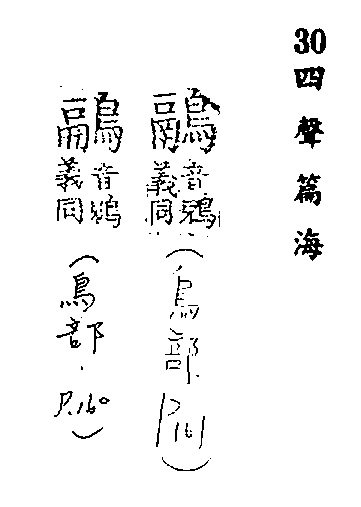 30
四聲篇海
鷊
音
義同
(鳥部.
P.161)
音
義同
(鳥部.
P.160)